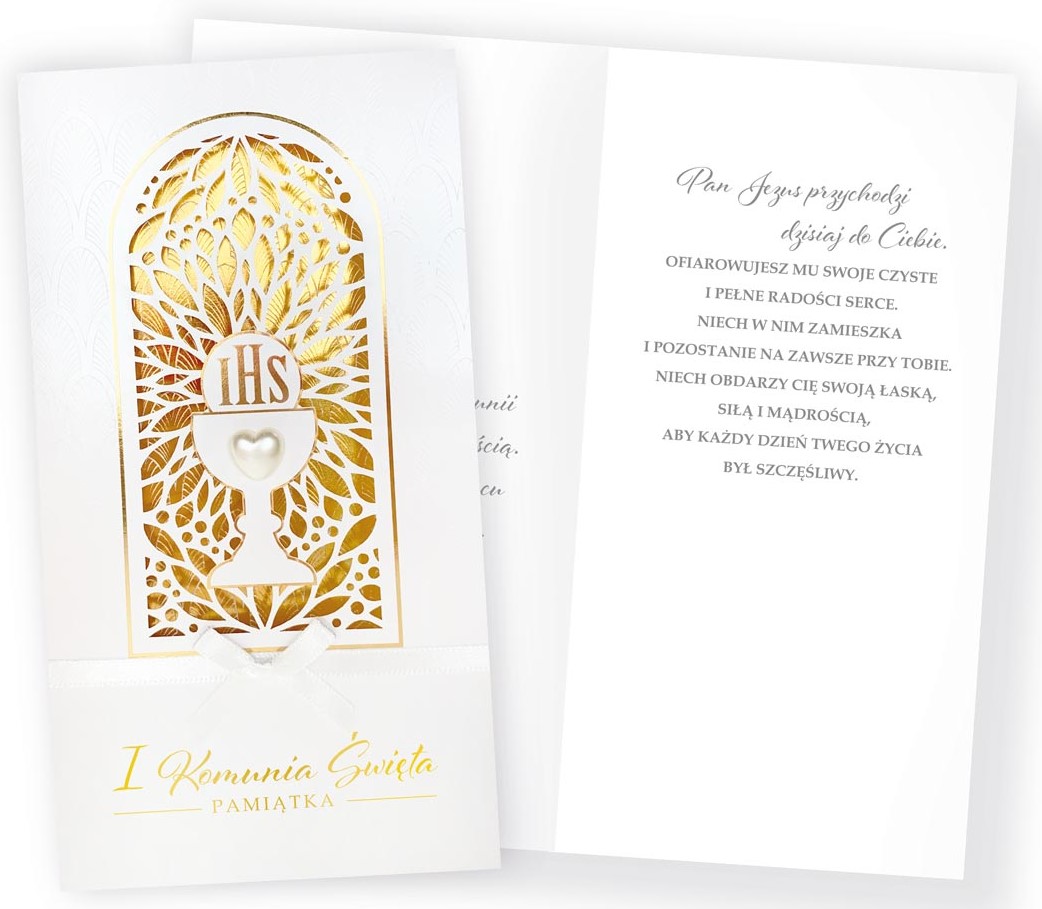 IHS
I Komunia Święta
PAMIĄTKA
Pan Jezus przychodzi
dzisiaj do Ciebie.
OFIAROWUJESZ MU SWOJE CZYSTE
I PEŁNE RADOŚCI SERCE.
NIECH W NIM ZAMIESZKA
I POZOSTANIE NA ZAWSZE PRZY TOBIE.
NIECH OBDARZY CIĘ SWOJĄ ŁASKĄ,
SIŁĄ I MĄDROŚCIĄ,
ABY KAŻDY DZIEŃ TWEGO ŻYCIA
BYŁ SZCZĘŚLIWY.